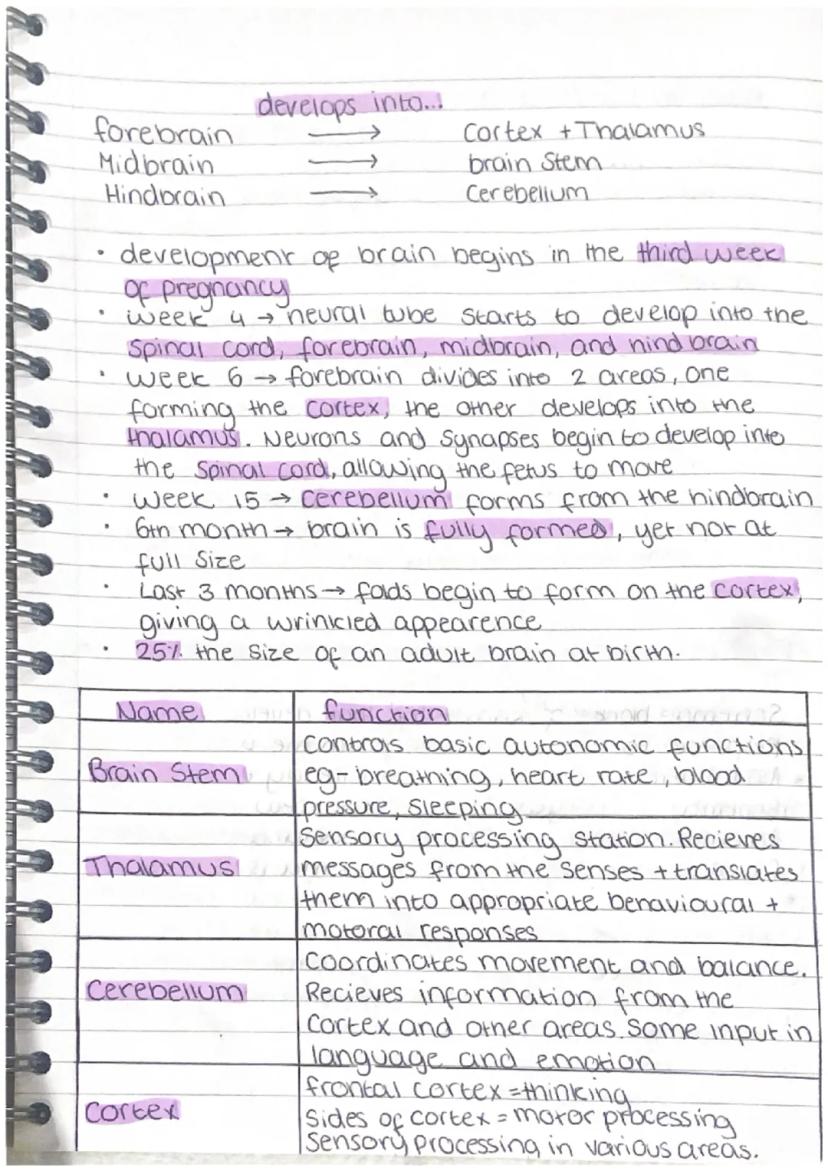 develops into...
forebrain → Cortex + Thalamus
Midbrain → brain Stem
Hindbrain → Cerebellum
• development of brain begins in the third week
of pregnancy
• week 4 → neural tube starts to develop into the
Spinal cord, forebrain, midbrain, and hindbrain
• week 6 → forebrain divides into 2 areas, one
forming the cortex, the other develops into the
thalamus. Neurons and Synapses begin to develop into
the Spinal cord, allowing the fetus to move
• week 15 → Cerebellum forms from the hindbrain
• 6th month → brain is fully formed, yet not at
full Size
• Last 3 months → folds begin to form on the cortex,
giving a wrinkled appearence
• 25% the size of an adult brain at birth.
Name function
Brain Stem
Controls basic autonomic functions
eg - breathing, heart rate, blood
pressure, Sleeping
Thalamus
Sensory processing station. Recieves
messages from the senses + translates
them into appropriate behavioural +
motoral responses
Cerebellum
Coordinates movement and balance.
Recieves information from the
Cortex and other areas. Some input in
language and emotion
Cortex
frontal cortex = thinking
Sides of cortex = motor processing
Sensory processing in various areas.